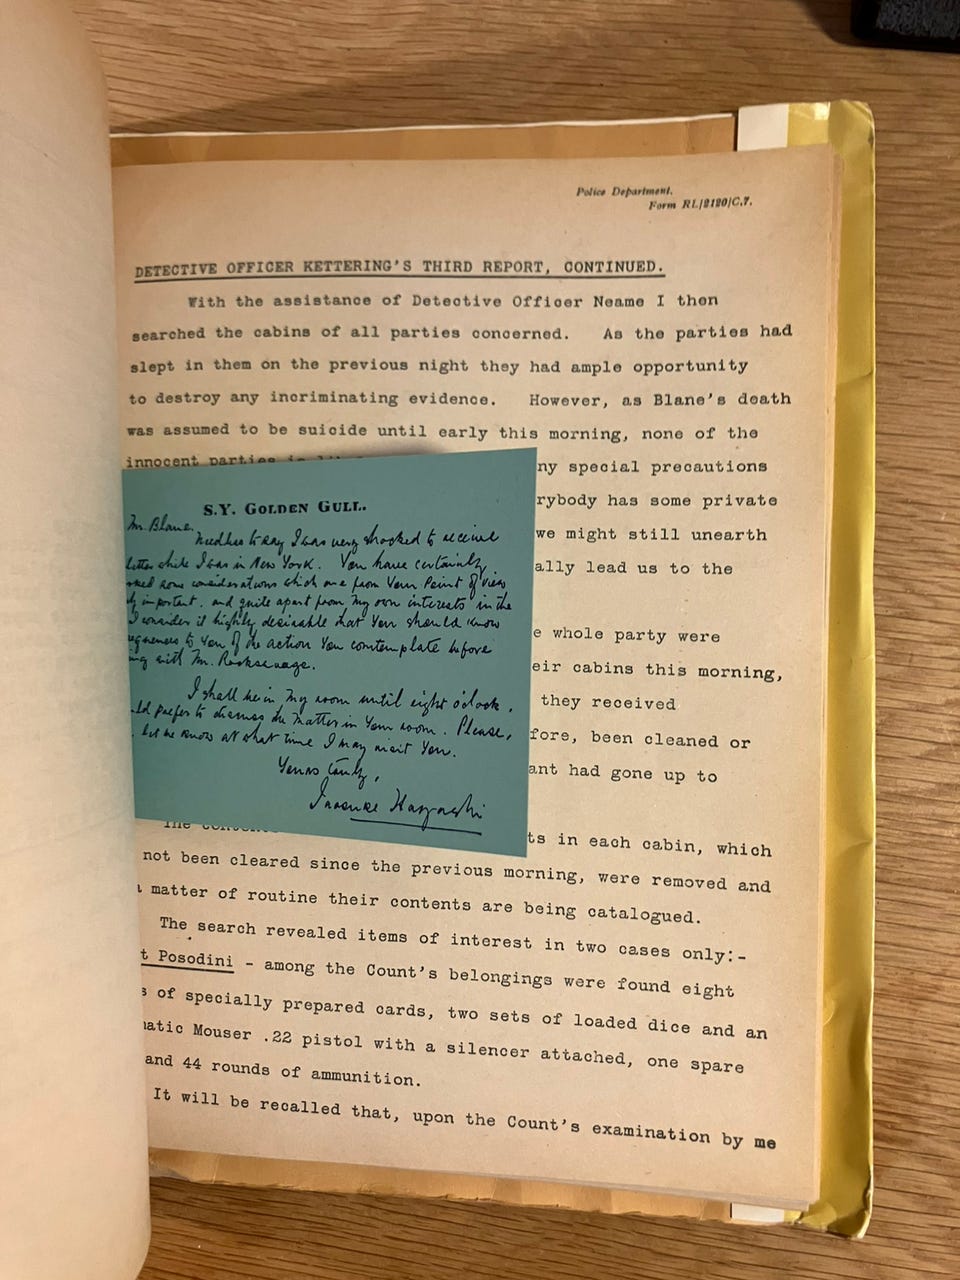 Police Department.
Form RL/2120/C.7.
DETECTIVE OFFICER KETTERING'S THIRD REPORT, CONTINUED.
With the assistance of Detective Officer Neame I then
searched the cabins of all parties concerned. As the parties had
slept in them on the previous night they had ample opportunity
to destroy any incriminating evidence. However, as Blane's death
was assumed to be suicide until early this morning, none of the
innocent parties is
ny special precautions
rybody has some private
we might still unearth
ally lead us to the
e whole party were
eir cabins this morning,
they received
fore, been cleaned or
ant had gone up to
S.Y. GOLDEN GULL.
Mr. Blane.
Needless to say I was very shocked to receive
letter while I was in New York. You have certainly
some considerations which are from Your Point of view
important, and quite apart from My own interests in the
I consider it highly desirable that You should know
to You of the action You contemplate before
with Mr. Rocksavage.
I shall be in My room until eight o'clock,
ld prefer to discuss the Matter in Your room. Please,
let me know at what time I may visit You.
Yours truly,
The
ts in each cabin, which
not been cleared since the previous morning, were removed and
a matter of routine their contents are being catalogued.
The search revealed items of interest in two cases only:-
t Posodini - among the Count's belongings were found eight
s of specially prepared cards, two sets of loaded dice and an
matic Mouser .22 pistol with a silencer attached, one spare
and 44 rounds of ammunition.
It will be recalled that, upon the Count's examination by me